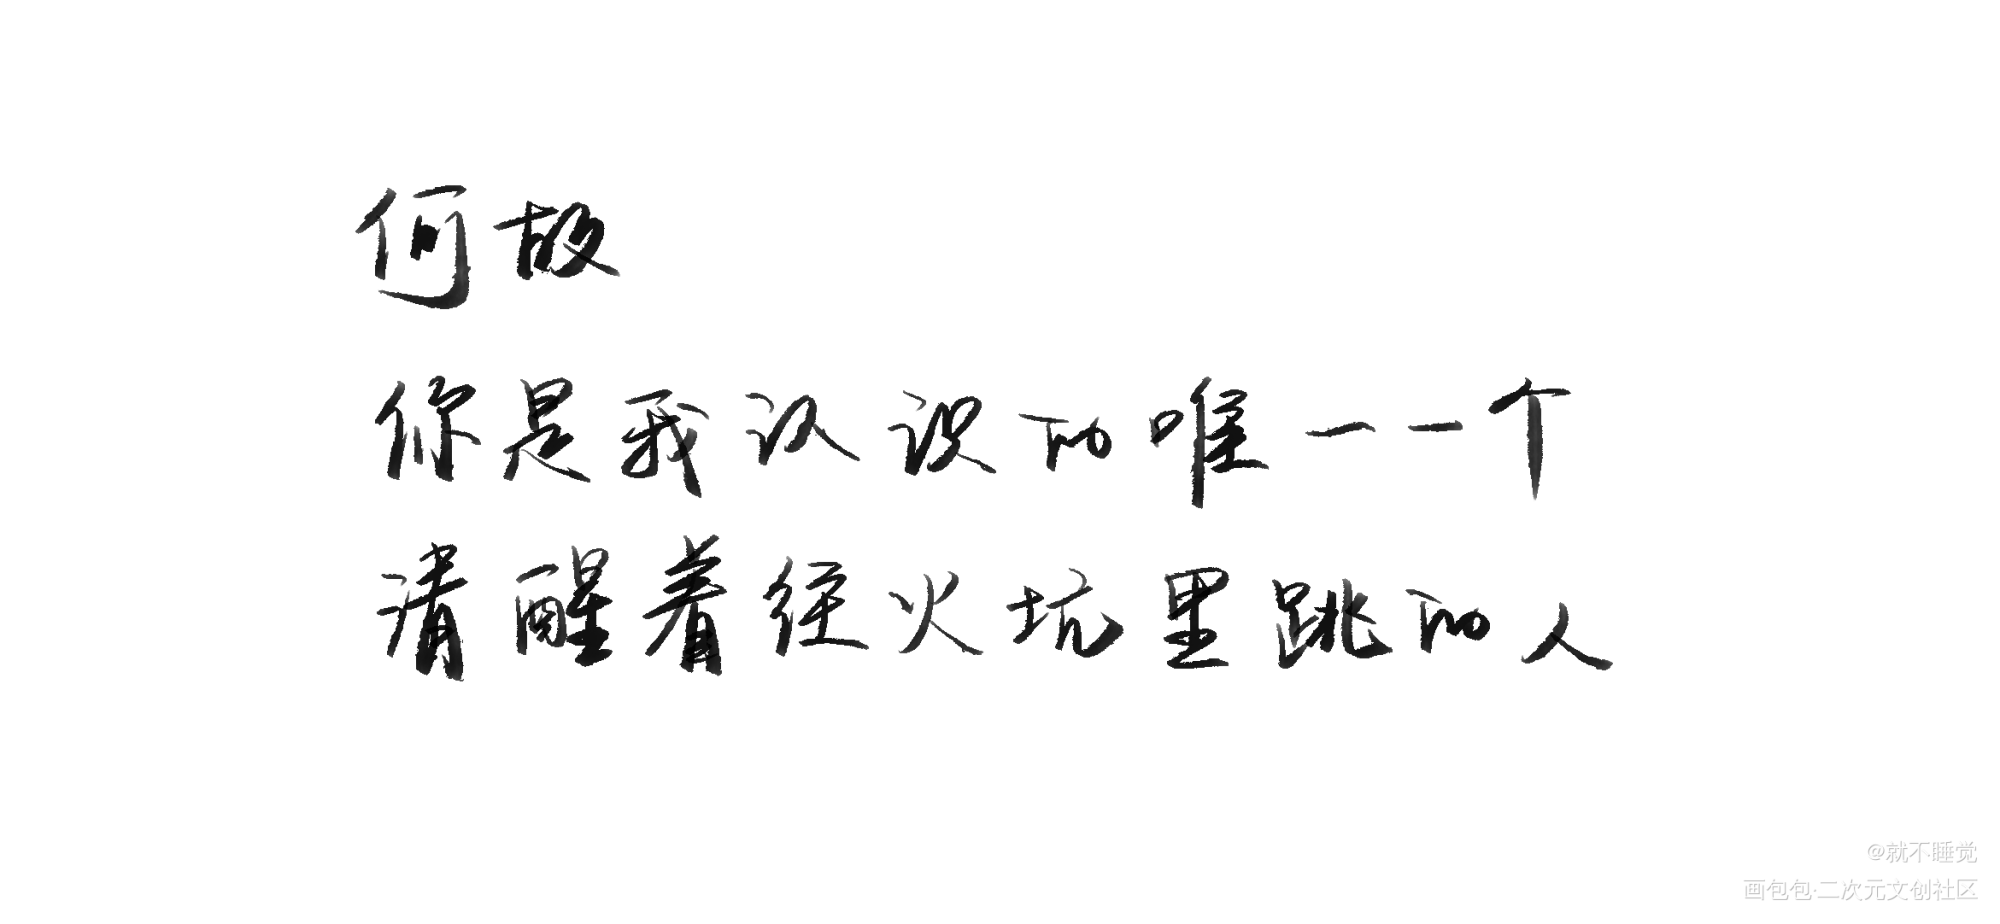 何故
你是我认识的唯一一个
清醒着往火坑里跳的人
@就不睡觉
画包包·二次元文创社区